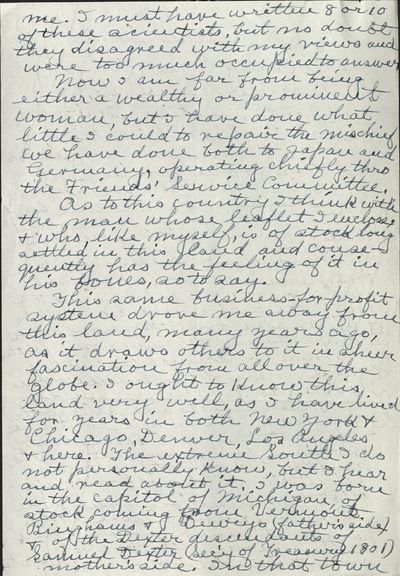 me. I must have written 8 or 10
of these scientists, but no doubt
they disagreed with my views and
were too much occupied to answer
Now I am far from being
either a wealthy or prominent
woman, but I have done what
little I could to repair the mischief
we have done both to Japan and
Germany, operating chiefly thro
the Friends' Service Committee.
As to this country I think with
the man whose leaflet I enclose
& who, like myself, is of stock long
settled in this land and conse-
quently has the feeling of it in
his bones, so to say.
This same business-for-profit
system drove me away from
this land, many years ago,
as it draws others to it in sheer
fascination from all over the
globe. I ought to know this
land very well, as I have lived
for years in both New York &
Chicago, Denver, Los Angeles
& here. The extreme South I do
not personally know, but I hear
and read about it. I was born
in the capitol of Michigan, of
stock coming from Vermont.
Binghams & Deweys (father's side)
& of the Dexter descendants of
Samuel Dexter (Sec'y of Treasury 1801)
mother's side. In that town